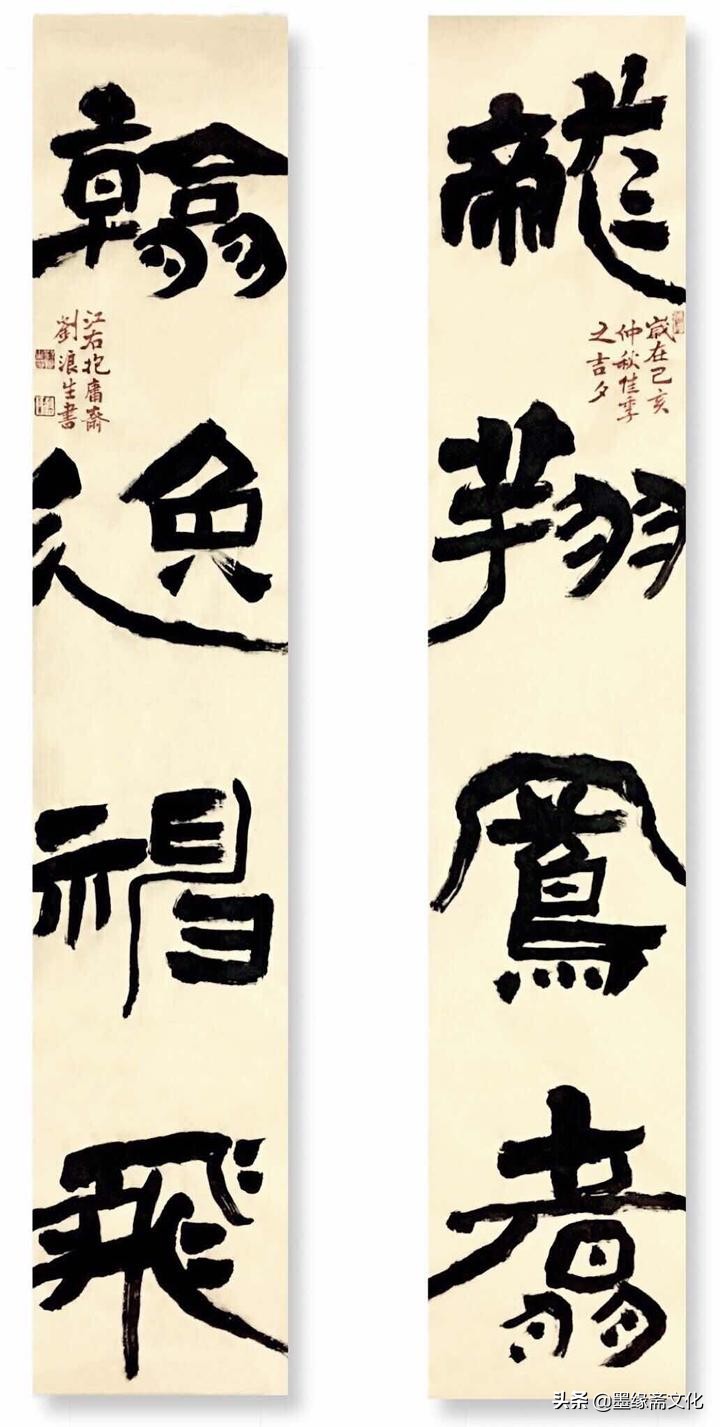 龍翔鳳翥
歲在己亥
仲秋佳季
之吉夕
翰逸神飛
江右抱庸齋
劉浪生書
头条 @墨缘斋文化